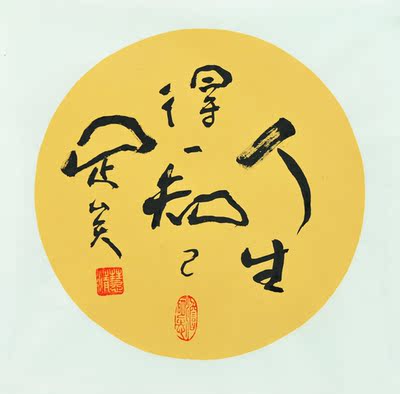 人生
得一知己
足矣